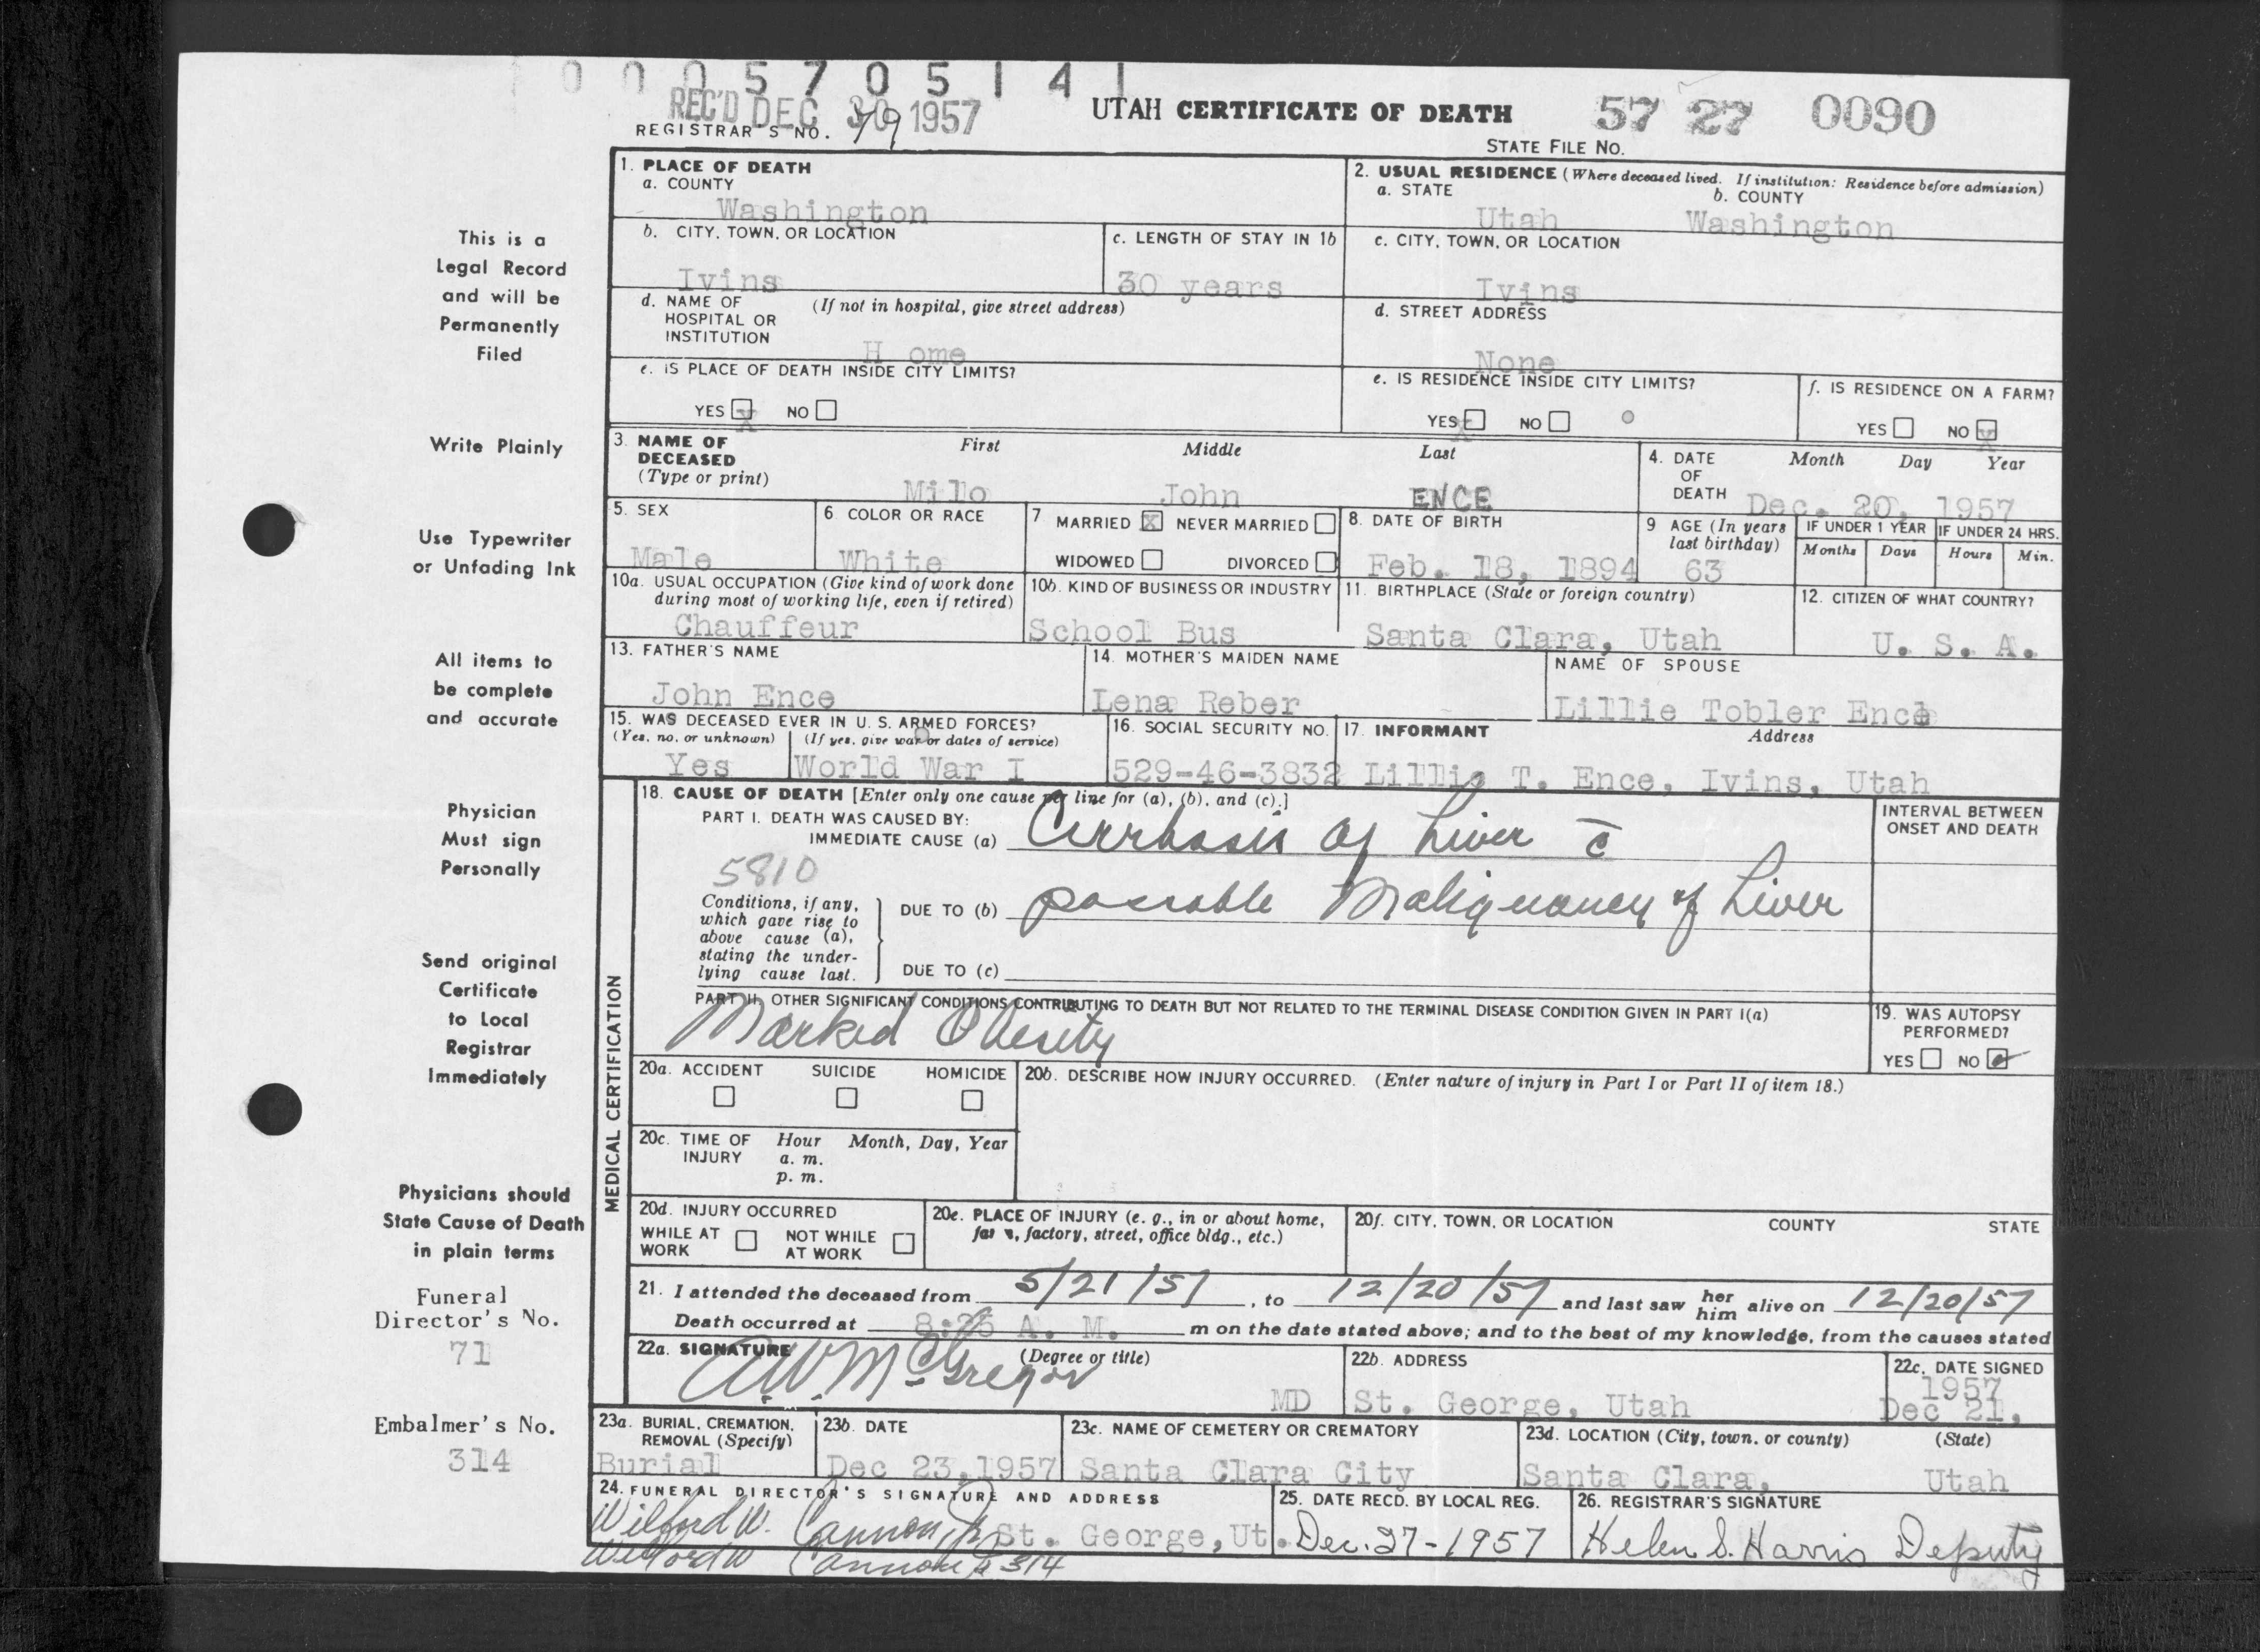 0005705141
REC'D DEC 30 1957
UTAH CERTIFICATE OF DEATH
57 27 0090
REGISTRAR'S NO. 79
STATE FILE NO.
1. PLACE OF DEATH
a. COUNTY
Washington
2. USUAL RESIDENCE (Where deceased lived. If institution: Residence before admission)
a. STATE b. COUNTY
Utah Washington
b. CITY, TOWN, OR LOCATION
Ivins
c. LENGTH OF STAY IN 1b
30 years
c. CITY, TOWN, OR LOCATION
Ivins
d. NAME OF (If not in hospital, give street address)
HOSPITAL OR
INSTITUTION
H ome
d. STREET ADDRESS
None
e. IS PLACE OF DEATH INSIDE CITY LIMITS?
YES X NO
e. IS RESIDENCE INSIDE CITY LIMITS?
YES X NO
f. IS RESIDENCE ON A FARM?
YES NO X
3. NAME OF DECEASED
(Type or print)
First Middle Last
Milo John ENCE
4. DATE OF DEATH
Month Day Year
Dec. 20, 1957
5. SEX
Male
6 COLOR OR RACE
White
7 MARRIED X NEVER MARRIED
WIDOWED DIVORCED
8. DATE OF BIRTH
Feb. 18, 1894
9 AGE (In years
last birthday)
63
IF UNDER 1 YEAR IF UNDER 24 HRS.
Months Days Hours Min.
10a. USUAL OCCUPATION (Give kind of work done
during most of working life, even if retired)
Chauffeur
10b. KIND OF BUSINESS OR INDUSTRY
School Bus
11. BIRTHPLACE (State or foreign country)
Santa Clara, Utah
12. CITIZEN OF WHAT COUNTRY?
U. S. A.
13. FATHER'S NAME
John Ence
14. MOTHER'S MAIDEN NAME
Lena Reber
NAME OF SPOUSE
Lillie Tobler Ence
15. WAS DECEASED EVER IN U. S. ARMED FORCES?
(Yes, no, or unknown) (If yes, give war or dates of service)
Yes World War I
16. SOCIAL SECURITY NO.
529-46-3832
17. INFORMANT Address
Lillie T. Ence, Ivins, Utah
MEDICAL CERTIFICATION
18. CAUSE OF DEATH [Enter only one cause per line for (a), (b), and (c).]
PART I. DEATH WAS CAUSED BY:
IMMEDIATE CAUSE (a) Cirrhosis of Liver c̄
INTERVAL BETWEEN
ONSET AND DEATH
5810
Conditions, if any,
which gave rise to
above cause (a),
stating the under-
lying cause last.
DUE TO (b) possable Malignancy of Liver
DUE TO (c)
PART II. OTHER SIGNIFICANT CONDITIONS CONTRIBUTING TO DEATH BUT NOT RELATED TO THE TERMINAL DISEASE CONDITION GIVEN IN PART I(a)
Marked Obesity
19. WAS AUTOPSY
PERFORMED?
YES NO
20a. ACCIDENT SUICIDE HOMICIDE
20b. DESCRIBE HOW INJURY OCCURRED. (Enter nature of injury in Part I or Part II of item 18.)
20c. TIME OF INJURY
Hour Month, Day, Year
a. m.
p. m.
20d. INJURY OCCURRED
WHILE AT WORK NOT WHILE AT WORK
20e. PLACE OF INJURY (e. g., in or about home,
farm, factory, street, office bldg., etc.)
20f. CITY, TOWN, OR LOCATION COUNTY STATE
21. I attended the deceased from 5/21/57, to 12/20/57 and last saw her him alive on 12/20/57
Death occurred at 8:25 A. M. m on the date stated above; and to the best of my knowledge, from the causes stated
22a. SIGNATURE (Degree or title)
A.W. McGregor MD
22b. ADDRESS
St. George, Utah
22c. DATE SIGNED
1957
Dec 21,
23a. BURIAL, CREMATION,
REMOVAL (Specify)
Burial
23b. DATE
Dec 23, 1957
23c. NAME OF CEMETERY OR CREMATORY
Santa Clara City
23d. LOCATION (City, town, or county) (State)
Santa Clara, Utah
24. FUNERAL DIRECTOR'S SIGNATURE AND ADDRESS
Wilford W. Cannon Jr St. George, Ut.
Wilford W Cannon Jr 314
25. DATE RECD. BY LOCAL REG.
Dec. 27-1957
26. REGISTRAR'S SIGNATURE
Helen S. Harris Deputy
This is a
Legal Record
and will be
Permanently
Filed
Write Plainly
Use Typewriter
or Unfading Ink
All items to
be complete
and accurate
Physician
Must sign
Personally
Send original
Certificate
to Local
Registrar
Immediately
Physicians should
State Cause of Death
in plain terms
Funeral
Director's No.
71
Embalmer's No.
314